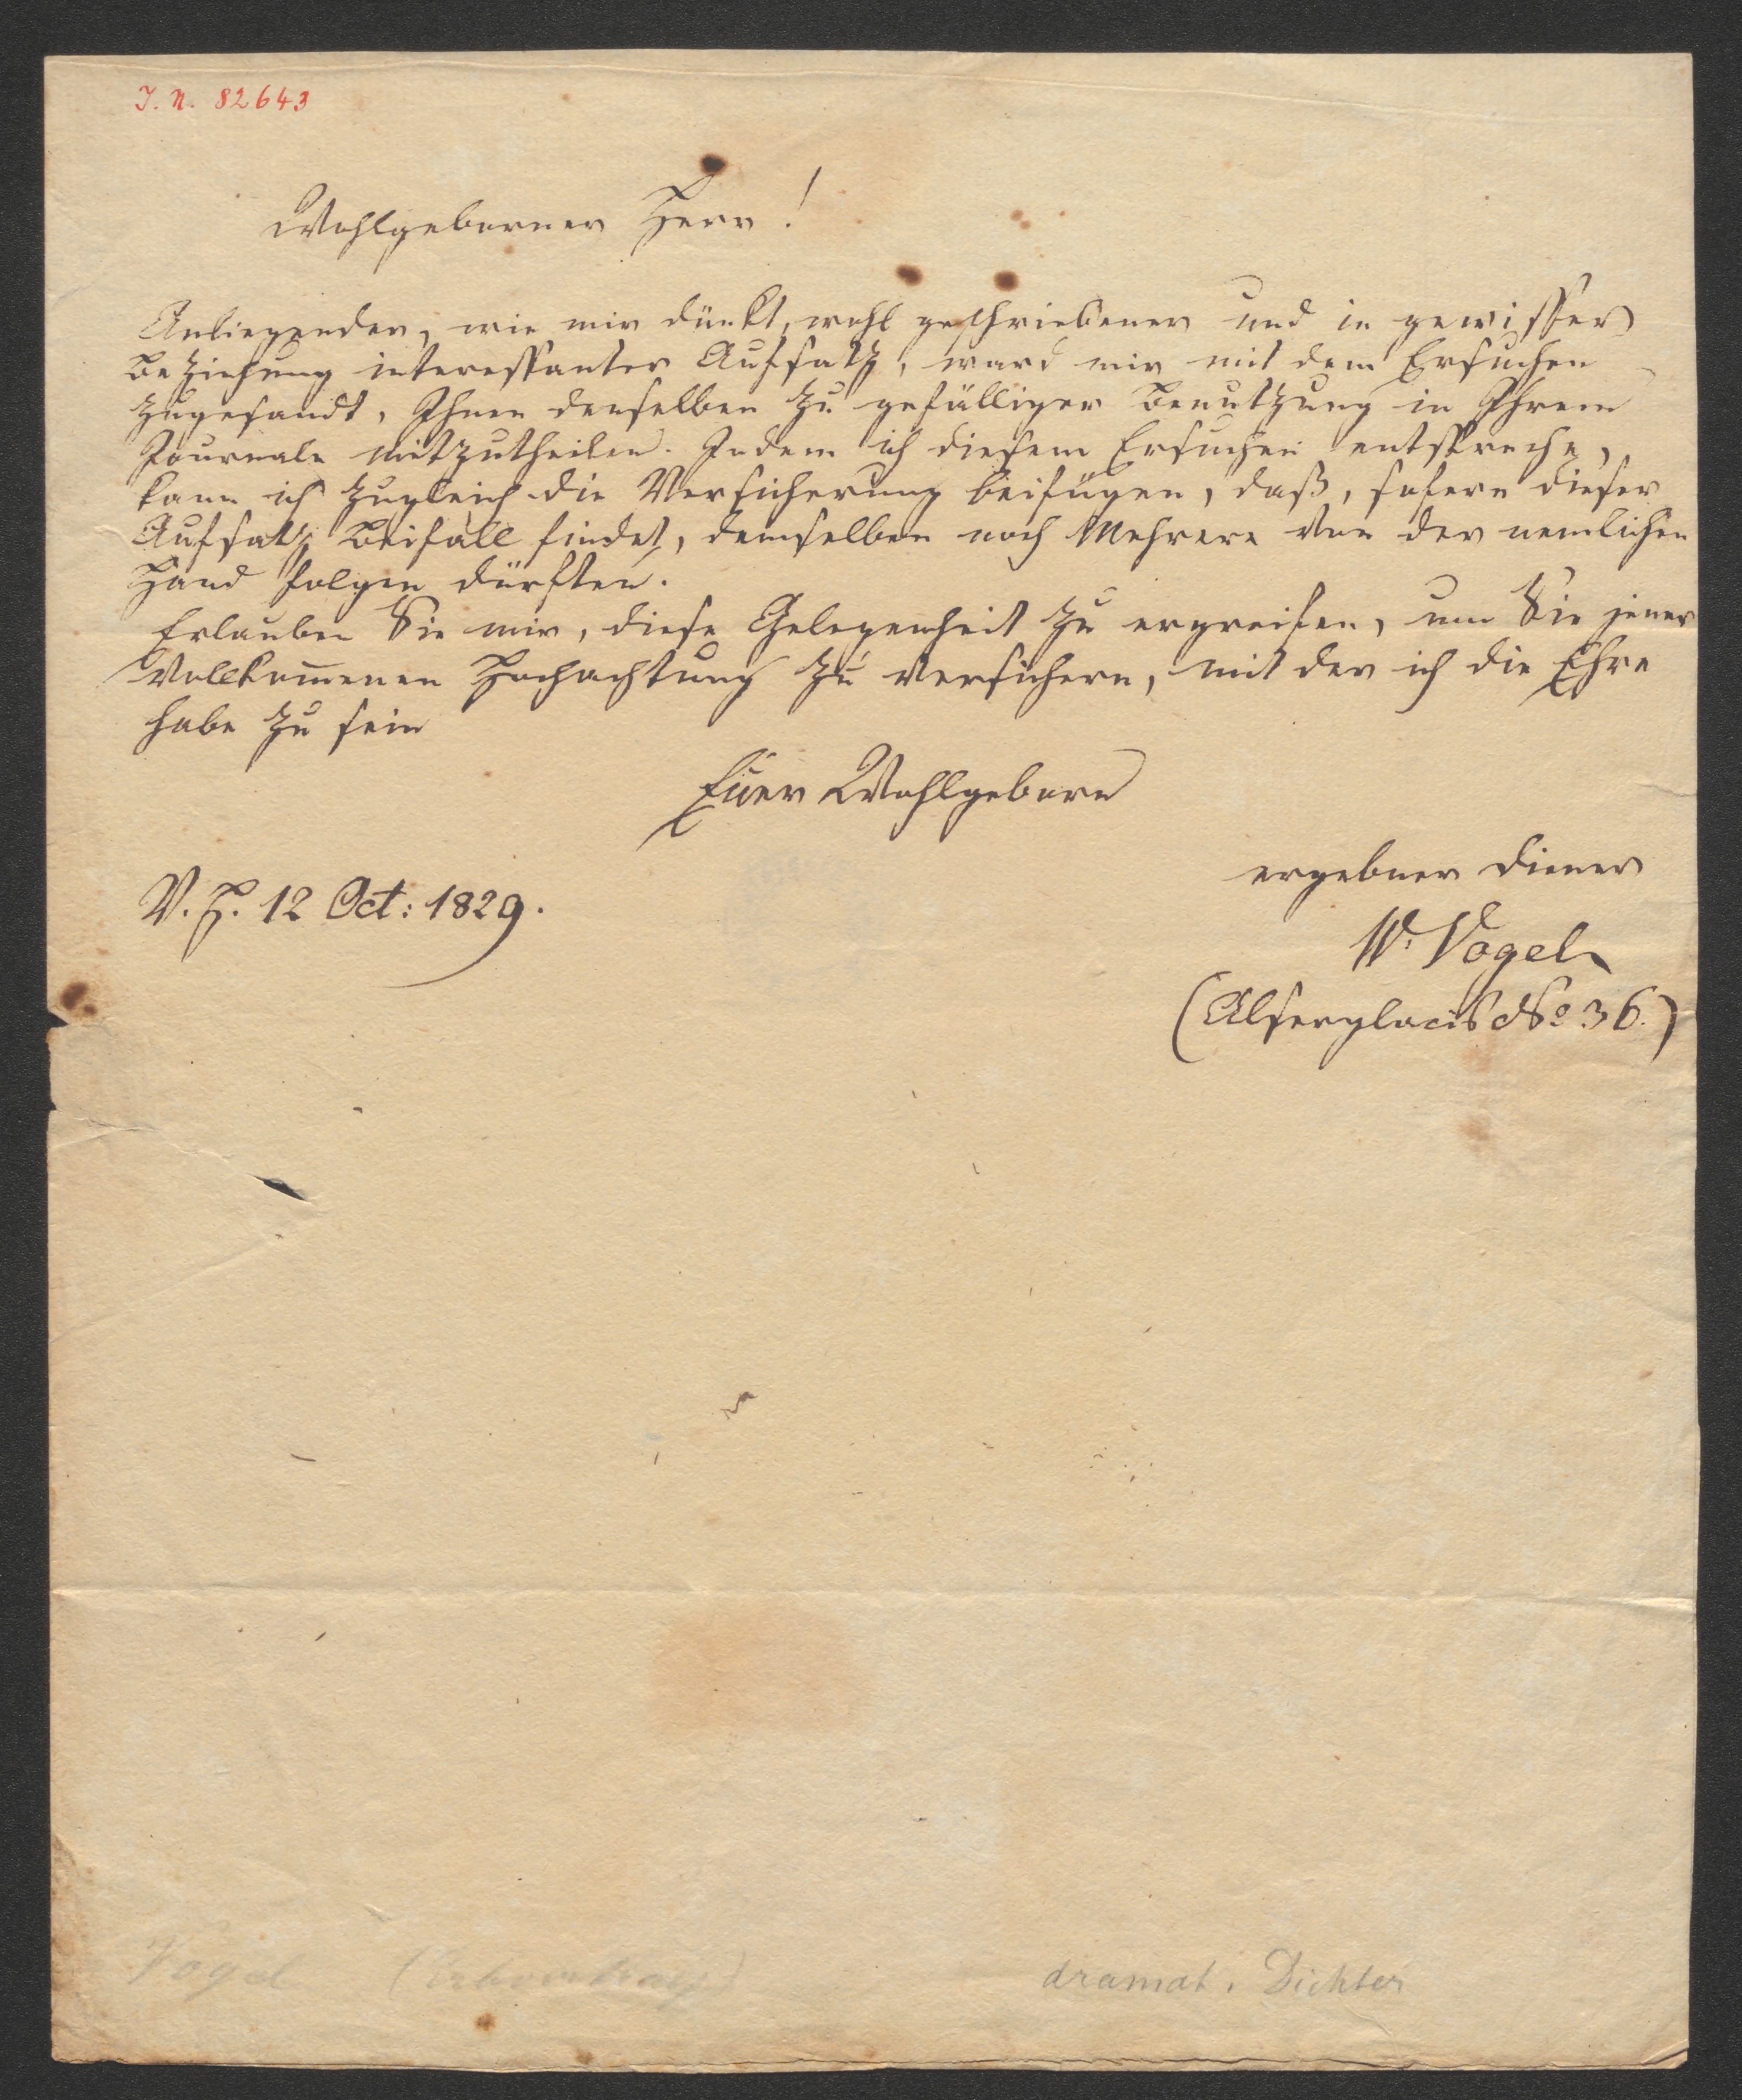 I. N. 82643
Wohlgeborner Herr!
Anliegender, wie mir dünkt, wohl geschriebener und in gewisser
Beziehung interessanter Aufsatz, ward mir mit dem Ersuchen
zugesandt, Ihnen denselben zu gefälliger Benutzung in Ihrem
Journale mitzutheilen. Indem ich diesem Ersuchen entspreche,
kann ich zugleich die Versicherung beifügen, daß, sofern dieser
Aufsatz Beifall findet, demselben noch Mehrere von der nemlichen
Hand folgen dürften.
Erlauben Sie mir, diese Gelegenheit zu ergreifen, um Sie jener
vollkom̅enen Hochachtung zu versichern, mit der ich die Ehre
habe zu sein
Euer Wohlgeborn
ergebner Diener
V. H. 12 Oct: 1829.
W. Vogel
(Alserglacis No 36.)
Vogel dramat. Dichter